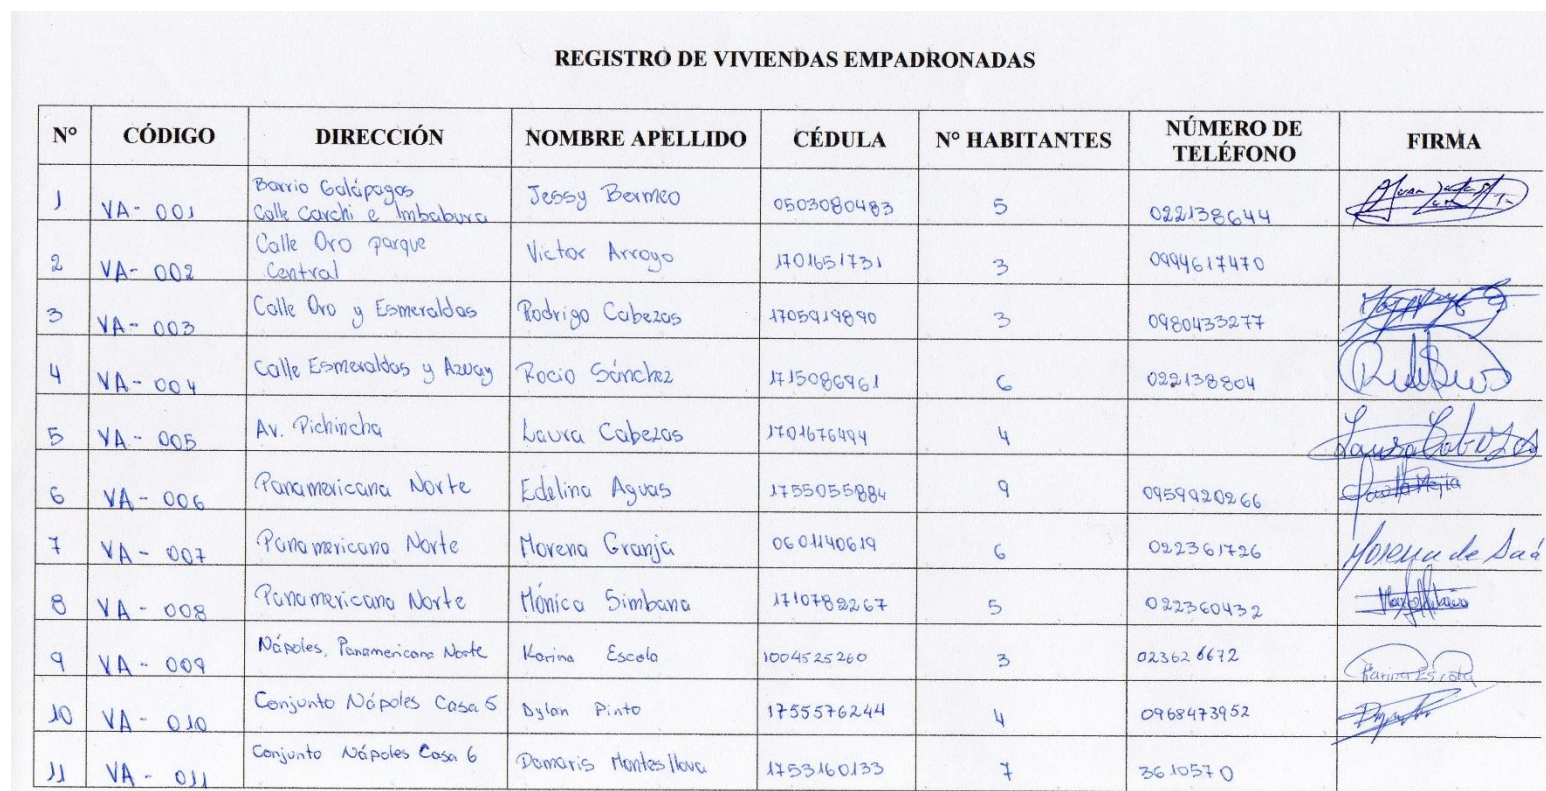 REGISTRO DE VIVIENDAS EMPADRONADAS
N° CÓDIGO DIRECCIÓN NOMBRE APELLIDO CÉDULA N° HABITANTES NÚMERO DE TELÉFONO FIRMA
1 VA- 001 Barrio Galápagos Calle Carchi e Imbabura Jessy Bermeo 0503080483 5 022138644
2 VA- 002 Calle Oro parque Central Victor Arroyo 1701651731 3 0994617470
3 VA- 003 Calle Oro y Esmeraldas Rodrigo Cabezas 1705919890 3 0980433277
4 VA- 004 Calle Esmeraldas y Azuay Rocio Sánchez 1715086961 6 022138804
5 VA- 005 Av. Pichincha Laura Cabezas 1701676494 4
6 VA- 006 Panamericana Norte Edelina Aguas 1755055884 9 0959920266
7 VA- 007 Panamericana Norte Morena Granja 0601140619 6 022361726 Morena de Saá
8 VA- 008 Panamericana Norte Mónica Simbana 1710782267 5 022360432
9 VA- 009 Nápoles, Panamericana Norte Karina Escola 1004525260 3 023626672 Karina Escola
10 VA- 010 Conjunto Nápoles Casa 5 Dylan Pinto 1755576244 4 0968473952
11 VA- 011 Conjunto Nápoles Casa 6 Damaris 1753160133 7 3610570